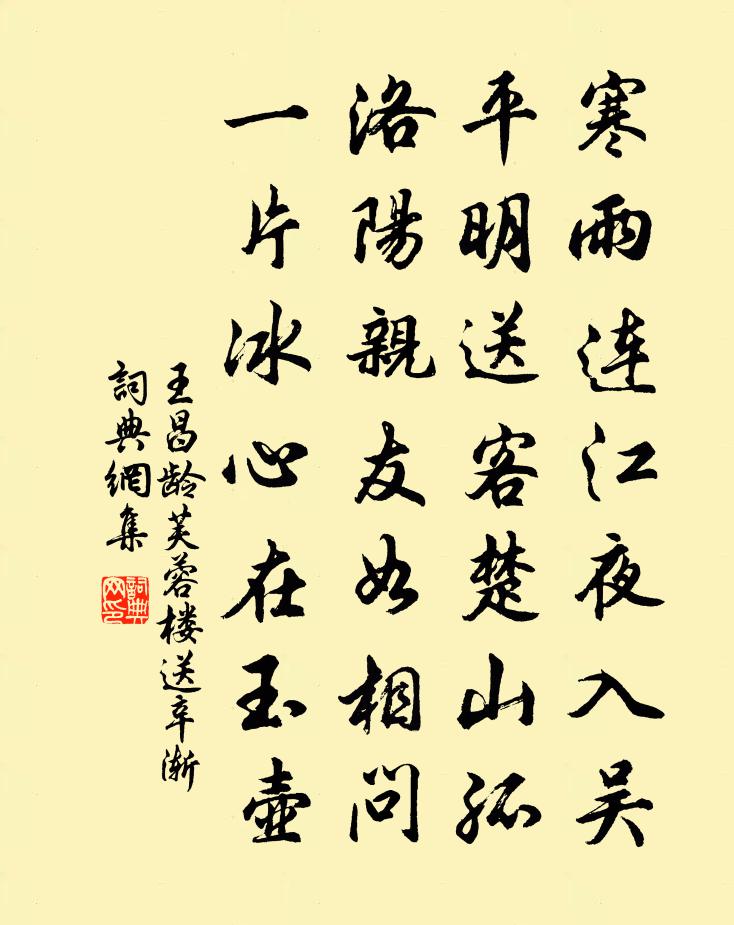 寒雨連江夜入吴
平明送客楚山孤
洛陽親友如相問
一片冰心在玉壺
王昌龄芙蓉楼送辛渐
詞典網集
詞典網印